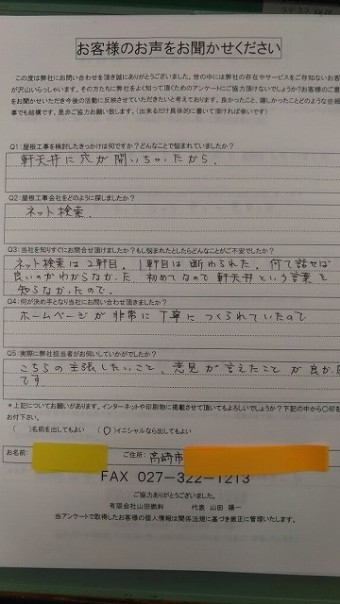 お客様のお声をお聞かせください
この度は弊社にお問い合わせを頂き誠にありがとうございました。世の中には弊社の存在やサービスをご存知ないお客
が沢山いらっしゃいます。その方たちに弊社をよく知って頂くためのアンケートにご協力頂けないでしょうか?お客様のご意
をお聞かせいただき今後の活動に反映させていただきたいと考えております。良かったこと、嬉しかったことどのような些細
事でも結構です。是非ご協力お願い致します。(出来るだけ具体的に書いて頂ければ幸いです)
Q1:屋根工事を検討したきっかけは何ですか?どんなことで悩まれていましたか?
軒天井に穴が開いちゃたから。
Q2:屋根工事会社をどのように探しましたか?
ネット検索。
Q3:当社を知りすぐにお問合せ頂けましたか?もし悩まれたとしたらどんなことがご不安でしたか?
ネット検索は2軒目。1軒目は断わられた。何て話せば
良いのかわからなかった 初めてなので軒天井という言葉を
知らなかたので。
Q4:何が決め手となり当社にお問い合わせ頂きましたか?
ホームページが非常に丁寧につくられていたので
Q5:実際に弊社担当者がお伺いしていかがでしたか?
こちらの主張したいこと、意見が言えたことが良か
です
*上記についてお願いがあります。インターネットや印刷物に掲載させて頂いてもよろしいでしょうか?下記の中から〇印を
お付下さい。
( )名前を出してもよい (O)イニシャルなら出してもよい
お名前:
ご住所: 高崎市
FAX 027-322-1213
ご協力ありがとうございました。
有限会社山田燃料 代表 山田 陽一
当アンケートで取得したお客様の個人情報は関係法規に基づき厳正に管理いたします。